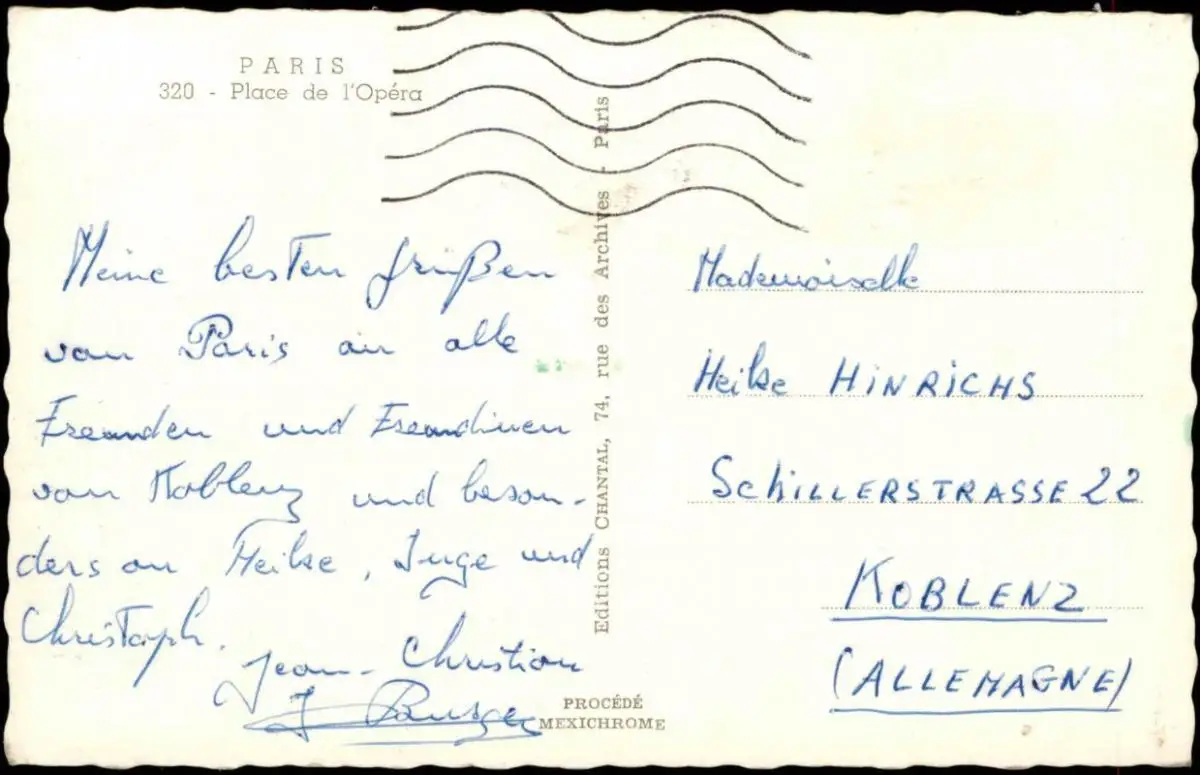 PARIS
320 - Place de l'Opéra
Meine besten Grüßen
von Paris an alle
Freunden und Freundinnen
von Koblenz und beson-
ders an Heike, Inge und
Christoph.
Jean-Christian
Editions CHANTAL, 74, rue des Archives - Paris
PROCÉDÉ
MEXICHROME
Mademoiselle
Heike HINRICHS
SCHILLERSTRASSE 22
KOBLENZ
(ALLEMAGNE)